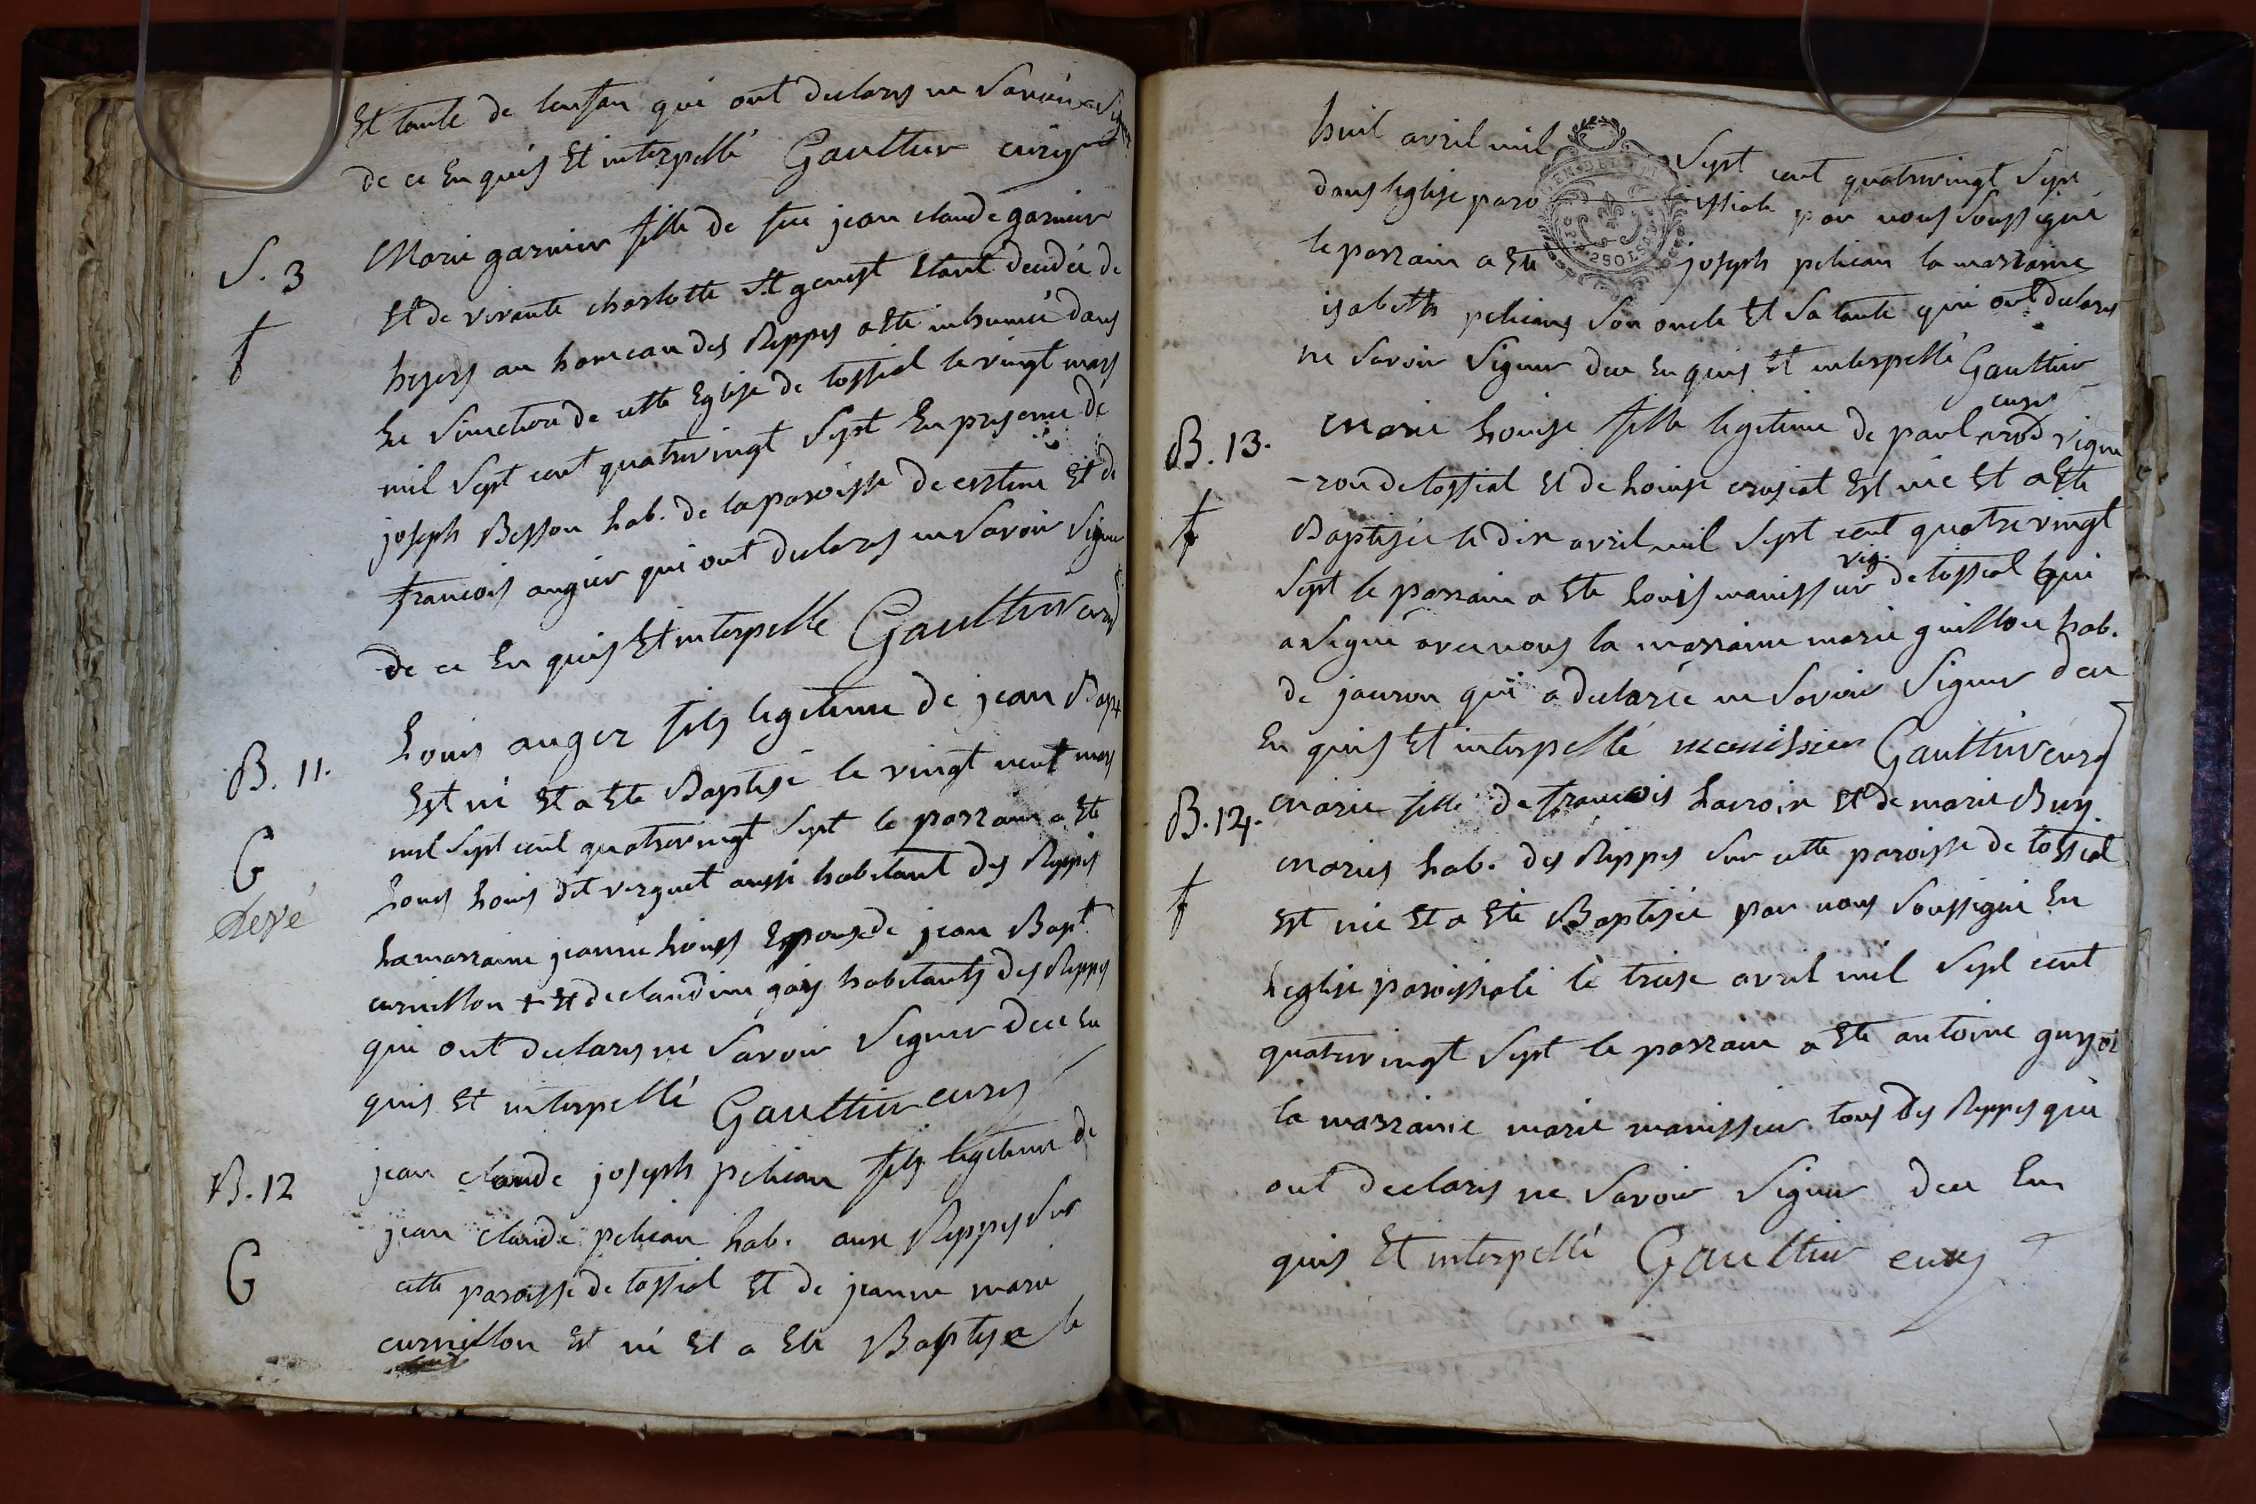 Et tante de lenfan qui ont declarés ne Savoir Signer
de ce En quis Et interpellé Gaulthier curé
S. 3
Marie garnier fille de feu jean claude garnier
Et de vivante charlotte St genest Etant decedée de
hyers au hameau des Rippes a Ete inhumée dans
Le Simetiere de cette Eglise de tossiat le vingt mars
mil Sept cent quatrevingt Sept En presence de
joseph Besson hab. de la paroisse de certine Et de
francois augier qui ont declarés ne Savoir Signer
de ce En quis Et interpelle Gaulthier curé
B. 11.
Louis auger fils legitime de jean Bapt
Est né Et a Ete Baptisé le vingt neuf mars
mil Sept cent quatrevingt Sept le parrain a Ete
G
Louis Louis dit verguet aussi habitant des Rippes
elevé
La marraine jeanne Louis Epouse de jean Bapt
curnillon + Et de claudine gay habitants des Rippes
qui ont declarés ne Savoir Signer de ce En
quis Et interpellé Gaulthier curé
B. 12
jean claude joseph pelican fils legitime de
jean claude pelican hab. aux Rippes Sur
G
cette paroisse de tossiat Et de jeanne marie
curnillon Est né Et a Ete Baptisé le
huit avril mil Sept cent quatrevingt Sept
dans leglise paroissiale par nous Soussigné
le parrain a Ete joseph pelican la marraine
isabeth pelican Son oncle Et Sa tante qui ont declarés
ne Savoir Signer de ce En quis Et interpellé Gaulthier
curé
B. 13.
Marie Louise fille legitime de paul vigne
-ron de tossiat Et de Louise crosiat Est née Et a Ete
Baptisée le dix avril mil Sept cent quatrevingt
vig.
Sept le parrain a Ete Louis manissier de tossiat qui
a Signé avec nous la marraine marie guillon hab.
de jauron qui a declarée ne Savoir Signer de ce
En quis Et interpellé manissier Gaulthier curé
B. 14.
Marie fille de francois Lacroix Et de marie Buy
mariés hab. des Rippes Sur cette paroisse de tossiat
Est née Et a Ete Baptisée par nous Soussigné En
Leglise paroissiale le treise avril mil Sept cent
quatrevingt Sept le parrain a Ete antoine guyot
la marraine marie manissier tous des Rippes qui
ont declarés ne Savoir Signer de ce En
quis Et interpellé Gaulthier curé
GEN DE
2 SOLS